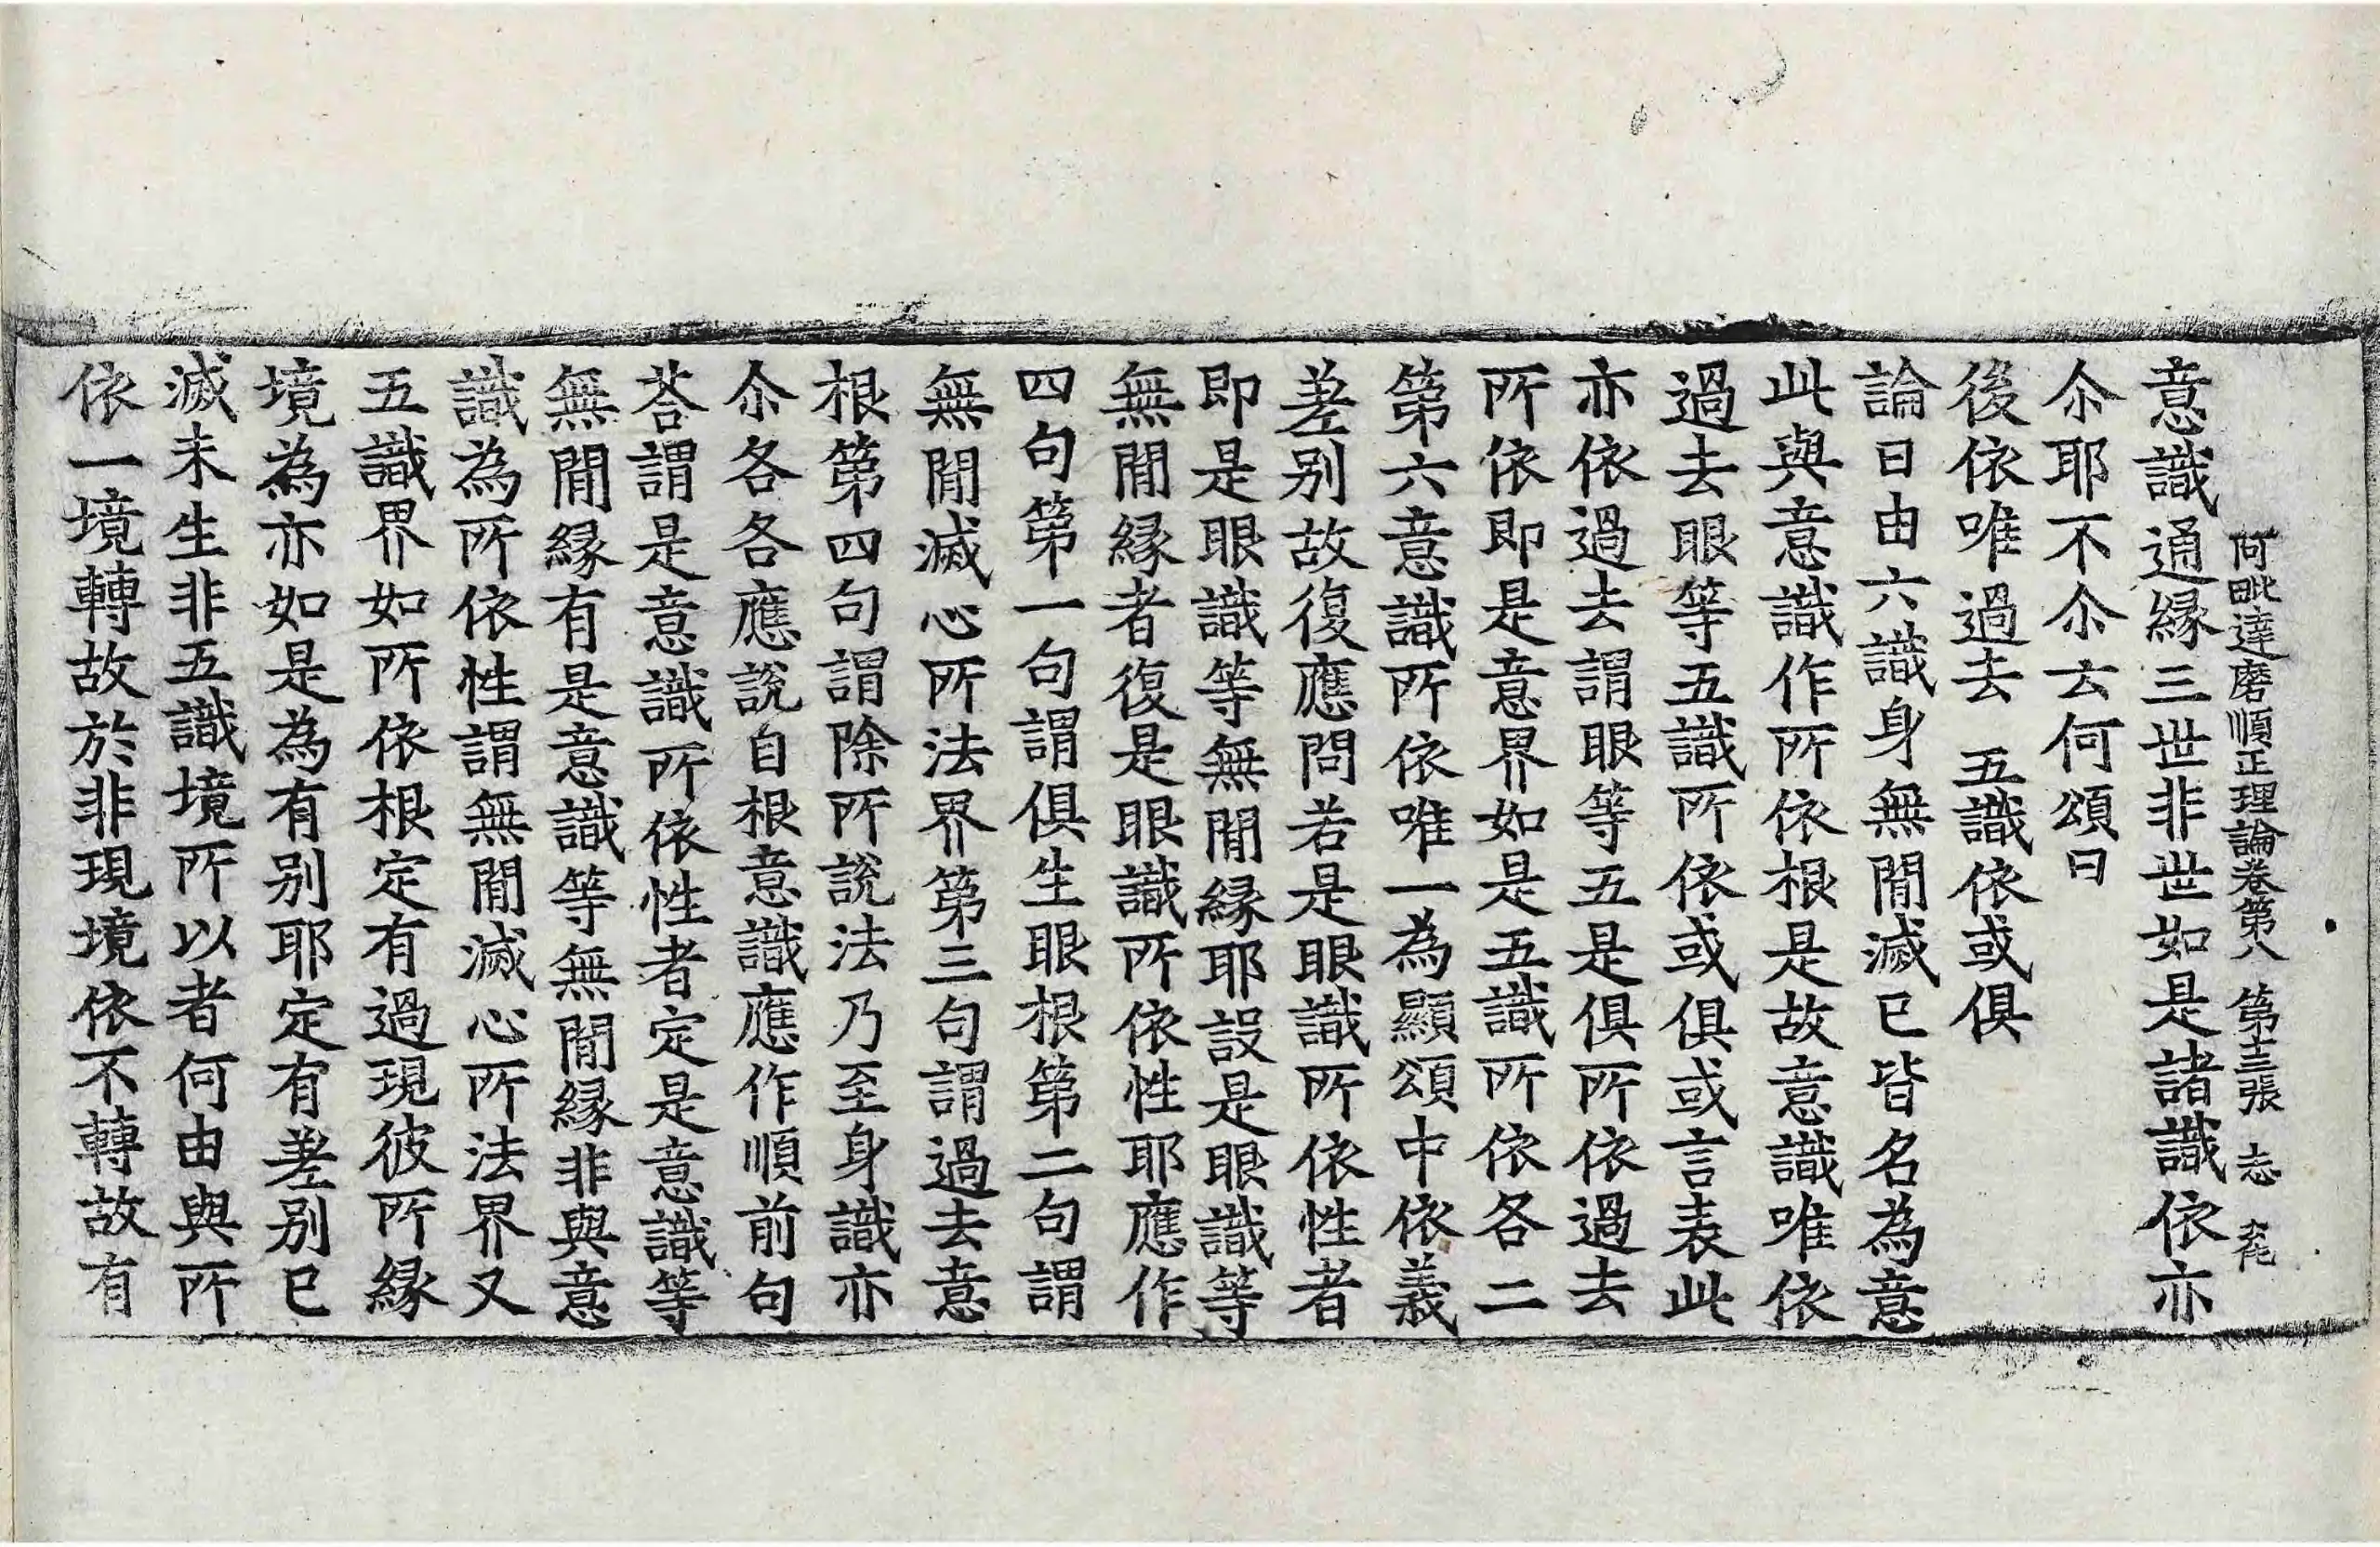 阿毗達磨順正理論卷第八　第十三張　志
意識通緣三世非世如是諸識依亦
尒耶不尒云何頌曰
後依唯過去　五識依或俱
論曰由六識身無間滅已皆名為意
此與意識作所依根是故意識唯依
過去眼等五識所依或俱或言表此
亦依過去謂眼等五是俱所依過去
所依即是意界如是五識所依各二
第六意識所依唯一為顯頌中依義
差别故復應問若是眼識所依性者
即是眼識等無間緣耶設是眼識等
無間緣者復是眼識所依性耶應作
四句第一句謂俱生眼根第二句謂
無間滅心所法界第三句謂過去意
根第四句謂除所說法乃至身識亦
尒各各應說自根意識應作順前句
荅謂是意識所依性者定是意識等
無間緣有是意識等無間緣非與意
識為所依性謂無間滅心所法界又
五識界如所依根定有過現彼所緣
境為亦如是為有别耶定有差别已
滅未生非五識境所以者何由與所
依一境轉故於非現境依不轉故有